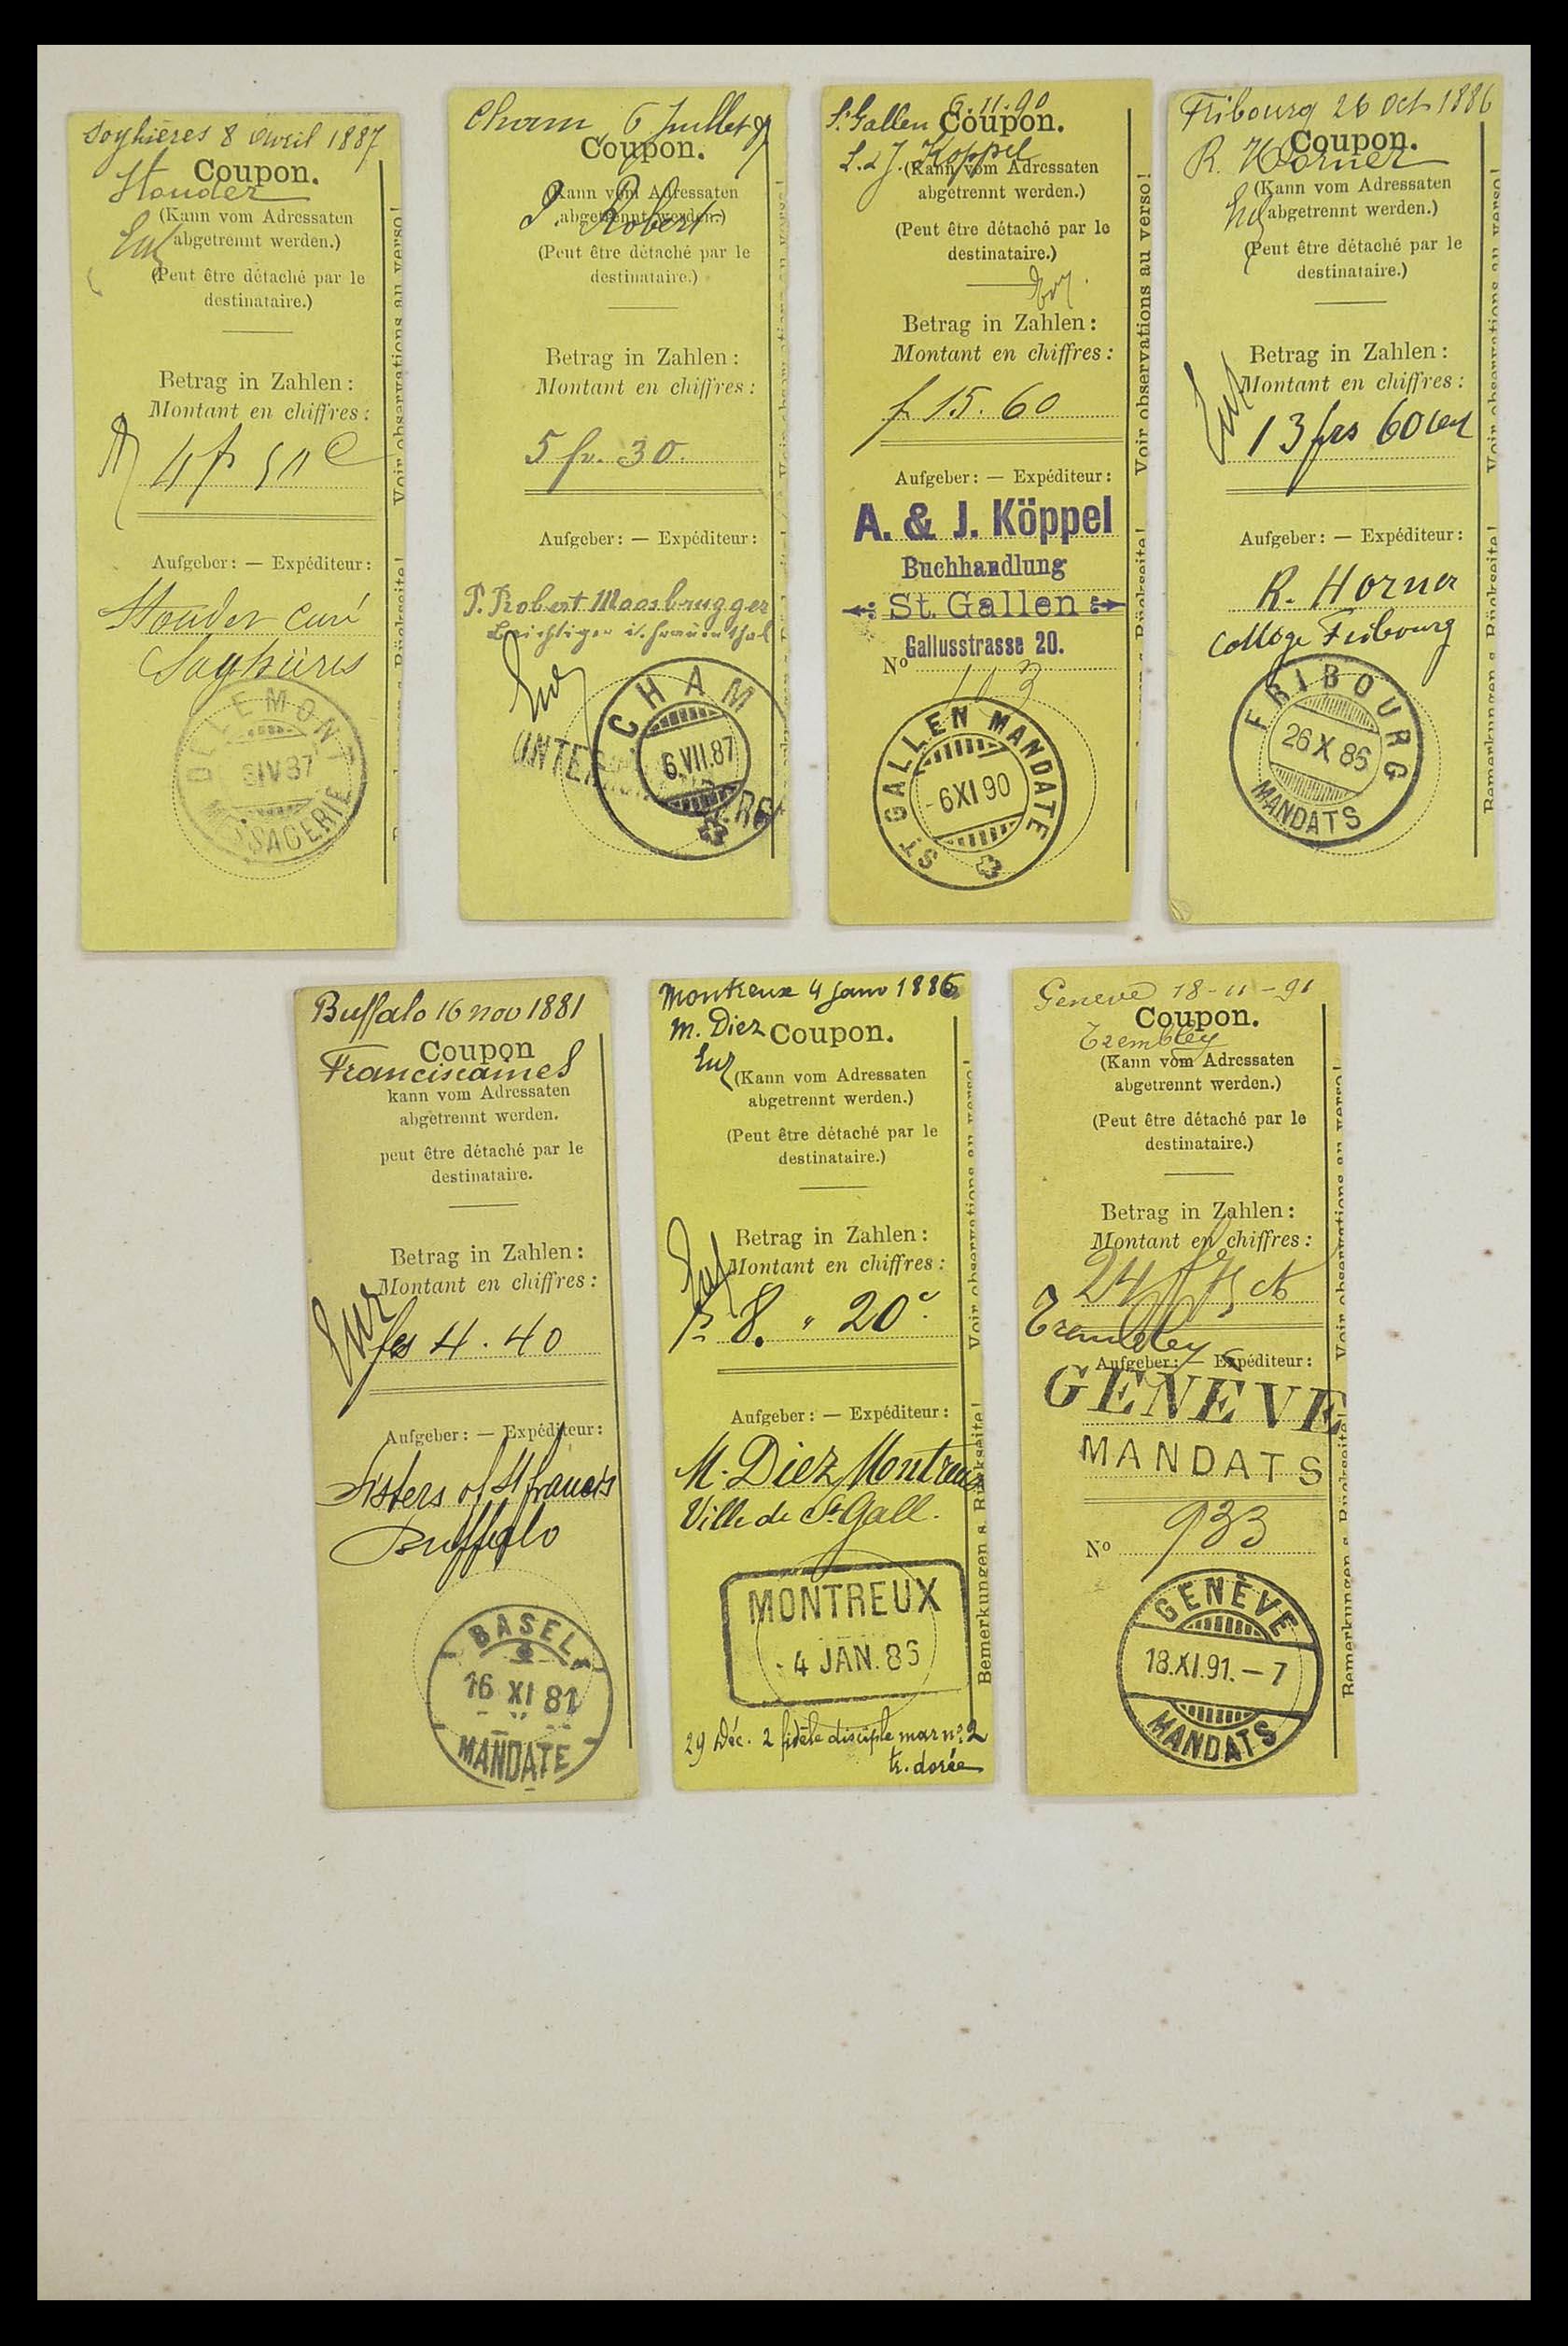 Soyhières 8 Avril 1887
Coupon.
Stouder
(Kann vom Adressaten
abgetrennt werden.)
(Peut être détaché par le
destinataire.)
Betrag in Zahlen:
Montant en chiffres:
Aufgeber: — Expéditeur:
Stouder curé
Soyhières
DELEMONT
MESSAGERIE
Cham 6 Juillet
Coupon.
P. Robert
(Kann vom Adressaten
abgetrennt werden.)
(Peut être détaché par le
destinataire.)
Betrag in Zahlen:
Montant en chiffres:
5 fr. 30.
Aufgeber: — Expéditeur:
P. Robert Moosbrugger
CHAM
6.VII.87
St. Gallen 6.11.90
Coupon.
Köppel
(Kann vom Adressaten
abgetrennt werden.)
(Peut être détaché par le
destinataire.)
Betrag in Zahlen:
Montant en chiffres:
f 15.60
Aufgeber: — Expéditeur:
A. & J. Köppel
Buchhandlung
St. Gallen
Gallusstrasse 20.
No 113
ST GALLEN MANDATE
-6XI 90
Voir observations au verso!
Fribourg 26 Oct 1886
Coupon.
R. Horner
(Kann vom Adressaten
abgetrennt werden.)
(Peut être détaché par le
destinataire.)
Betrag in Zahlen:
Montant en chiffres:
13 frs 60 cent
Aufgeber: — Expéditeur:
R. Horner
Collège Fribourg
FRIBOURG
26 X 86
MANDATS
Bemerkungen s. Rückseite!
Buffalo 16 nov 1881
Coupon
Franciscaines
kann vom Adressaten
abgetrennt werden.
peut être détaché par le
destinataire.
Betrag in Zahlen:
Montant en chiffres:
fcs 4.40
Aufgeber: — Expéditeur:
Sisters of St francis
Buffalo
BASEL
16 XI 81
MANDATE
Montreux 4 janv 1886
M. Diez
Coupon.
(Kann vom Adressaten
abgetrennt werden.)
(Peut être détaché par le
destinataire.)
Betrag in Zahlen:
Montant en chiffres:
fr 8. " 20 c.
Aufgeber: — Expéditeur:
M. Diez Montreux
Ville de St Gall.
MONTREUX
-4 JAN. 86
29 Déc. 2 fidèle disciple mar nº 2
tr. dorée
Voir observations au verso!
Bemerkungen s. Rückseite!
Genève 18-11-91
Coupon.
Trembley
(Kann vom Adressaten
abgetrennt werden.)
(Peut être détaché par le
destinataire.)
Betrag in Zahlen:
Montant en chiffres:
Trembley
Aufgeber: — Expéditeur:
GENÈVE
MANDATS
No 933
GENÈVE
18.XI.91.—7
MANDATS
Voir observations au verso!
Bemerkungen s. Rückseite!